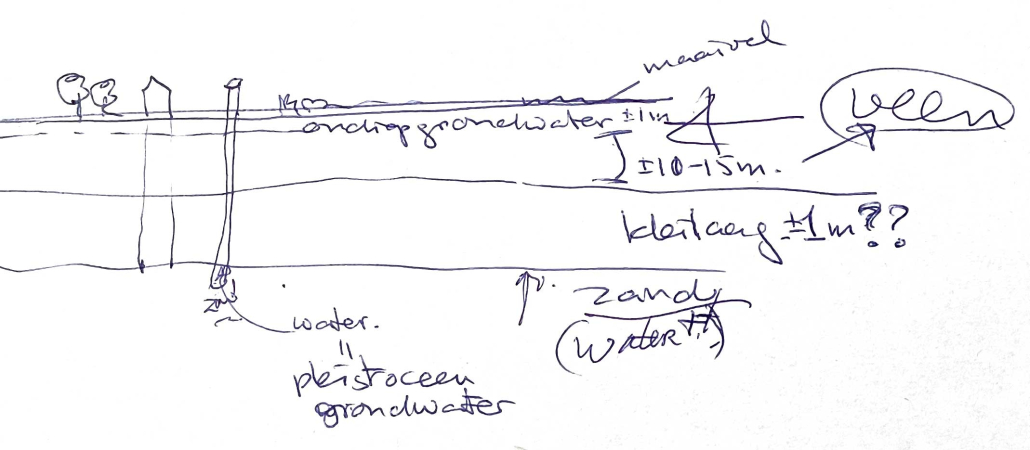 maaivel
veen
ondiep grondwater ±1m
±10-15m.
kleilaag ±1m??
zand
(water!!)
water.
=
pleistoceen
grondwater